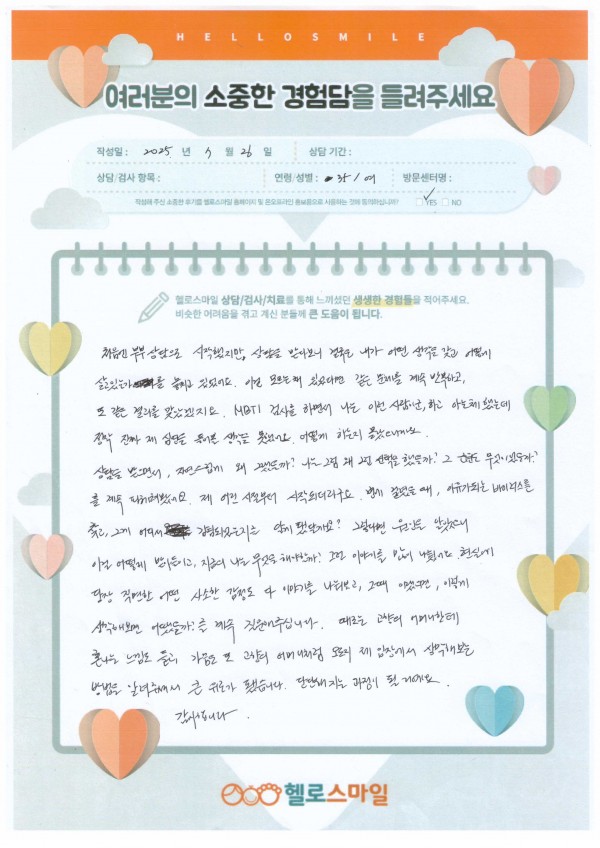 HELLOSMILE
여러분의 소중한 경험담을 들려주세요
작성일 : 2025. 년 5 월 26 일 상담 기간 :
상담/검사 항목 : 연령/성별 : 37 / 여 방문센터명 :
작성해 주신 소중한 후기를 헬로스마일 홈페이지 및 온오프라인 홍보용으로 사용하는 것에 동의하십니까? YES NO
헬로스마일 상담/검사/치료를 통해 느끼셨던 생생한 경험들을 적어주세요.
비슷한 어려움을 겪고 계신 분들께 큰 도움이 됩니다.
처음엔 부부 상담으로 시작했지만, 상담을 받다보니 결국은 내가 어떤 생각을 갖고 어떻게
살고있는가를 놓치고 있었어요. 이걸 모르는채 있었다면 같은 문제를 계속 반복하고,
또 같은 결과를 맞았겠지요. MBTI 검사를 하면서 나는 이런 사람이난, 하고 아는체 했는데
정작 진짜 제 심연을 들여볼 생각을 못했어요. 어떻게 하는지 몰랐으니까요.
상담을 받으면서, 자연스럽게 왜 그랬을까? 나는 그럼 왜 그런 선택을 했을까? 그 근원은 무엇이었을까?
를 계속 파헤쳐봤어요. 제 어린 시절부터 시작되더라구요. 병에 걸렸을 때, 이유가되는 바이러스를
찾고, 그게 어디서 감염되었는지를 알게 됐달까요? 그렇다면 유인을 알았으니
이걸 어떻게 받아들이고, 지금의 나는 무엇을 해야할까? 그런 이야기를 많이 나눴어요. 현실에
당장 직면한 어떤 사소한 감정도 다 이야기를 나눠보고, 그때 이랬다면, 이렇게
생각해보면 어땠을까?를 계속 질문해주십니다. 때로는 고향의 어머니한테
혼나는 느낌도 들고, 가끔은 또 고향의 어머니처럼 오로지 제 입장에서 생각해보는
방법을 알려주셔서 큰 위로가 됐습니다. 단단해지는 과정이 될 거예요.
감사합니다.
헬로스마일